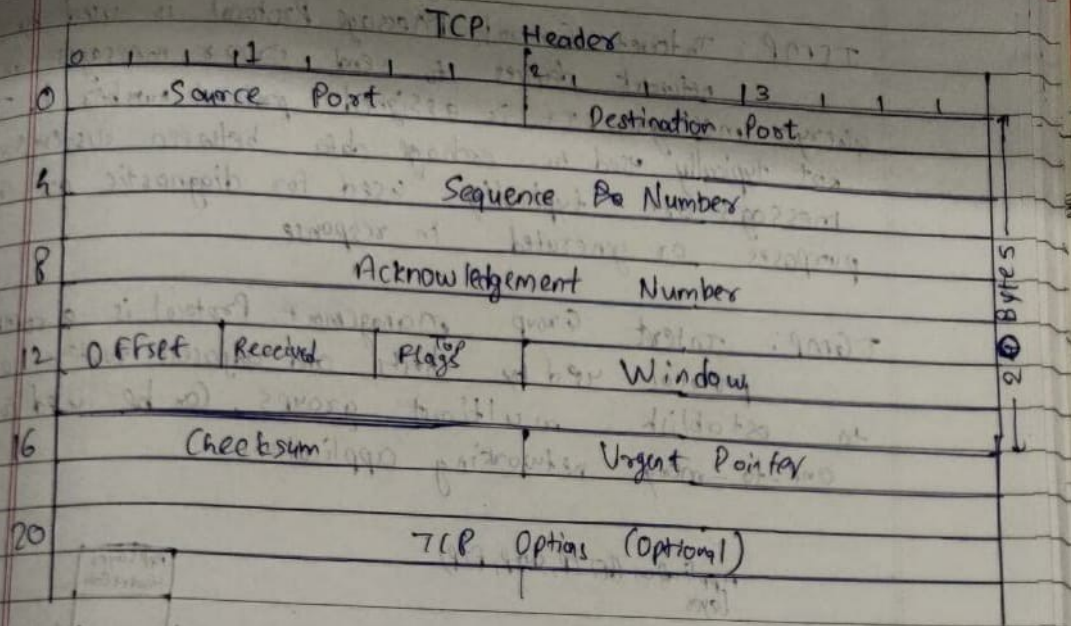 TCP Header
0 1 2 3
0 Source Port Destination Port
4 Sequence Number
8 Acknowledgement Number
12 Offset Received TCP Flags Window
16 Checksum Urgent Pointer
20 TCP Options (Optional)
20 Bytes